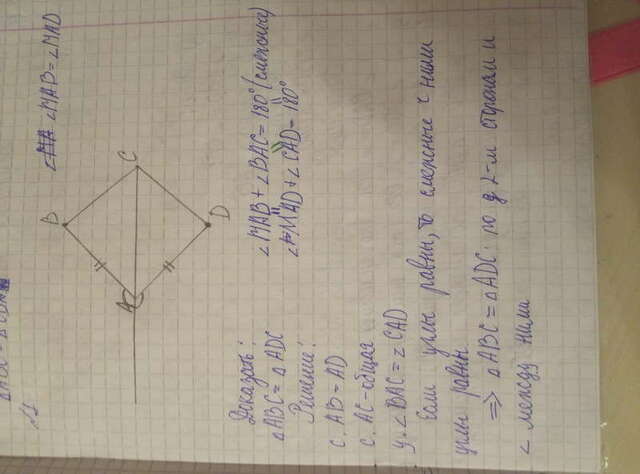 №1
∠MAB = ∠MAD
B
C
A
D
Доказать:
△ABC = △ADC
Решение:
∠MAB + ∠BAC = 180° (смежные)
∠MAD + ∠CAD = 180°
С. AB = AD
С. AC - общая
У. ∠BAC = ∠CAD
Если углы равны, то смежные с ними
углы равны
=> △ABC = △ADC по 2-м сторонам и
∠ между ними